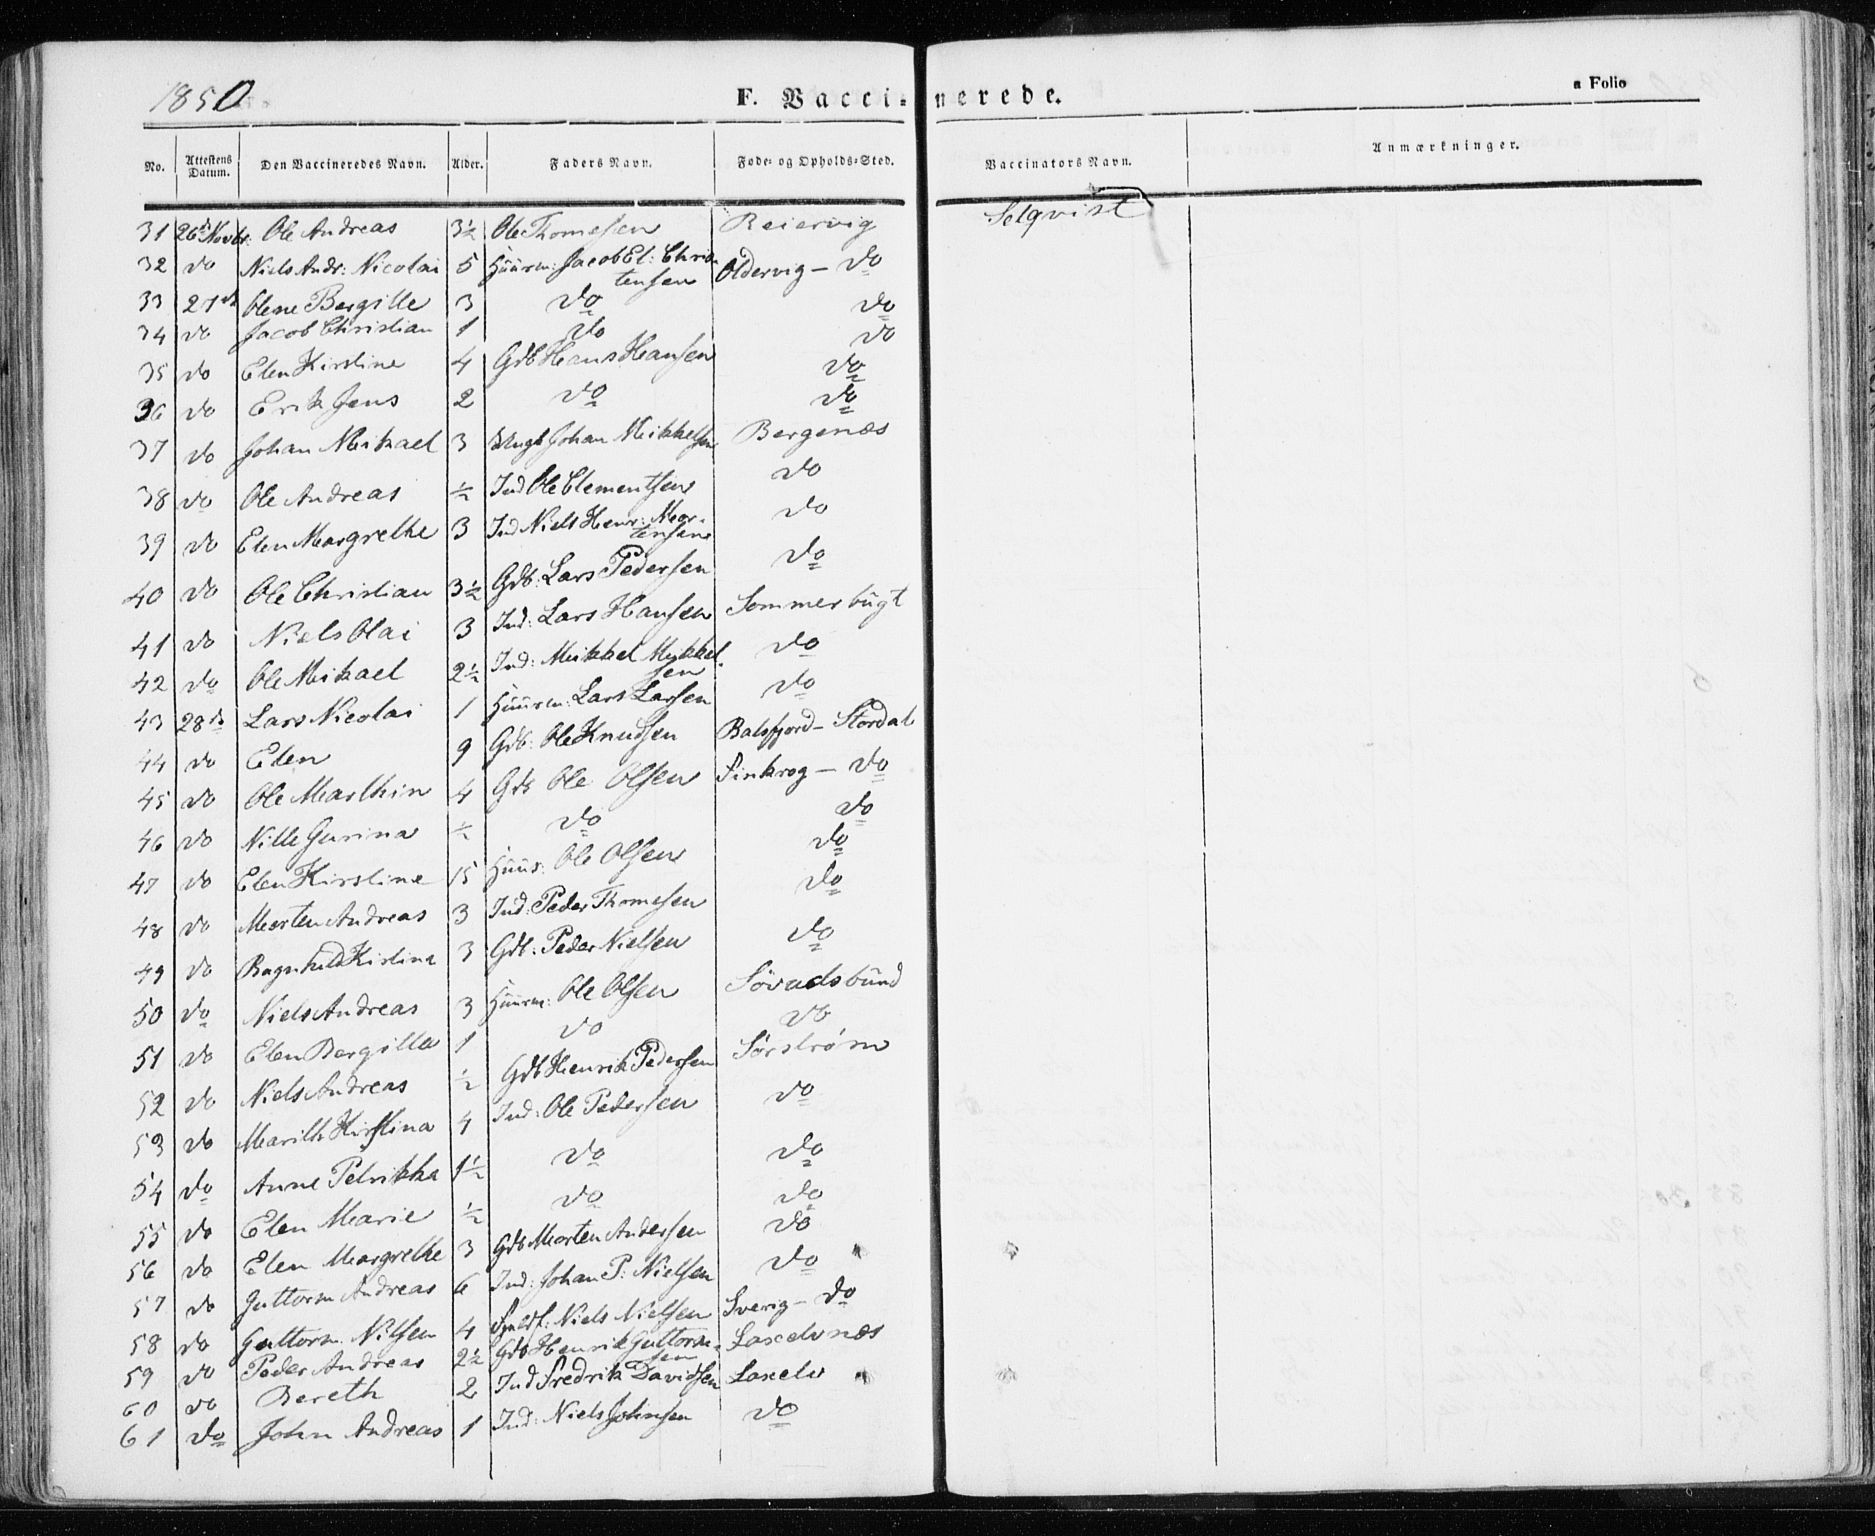 1850
F. Vaccinerede.
a Folio
No. Attestens Datum. Den Vaccineredes Navn. Alder. Faders Navn. Føde- og Opholds-Sted. Vaccinators Navn. Anmærkninger.
31 26 Novbr: Ole Andreas 3½ Ole Thomesen Reiervig Selqvist
32 do Niels Andr: Nicolai 5 Huusm: Jacob El: Chris-
tensen Oldervig - do
33 27 d Olene Bergitte 3 do do
34 do Jacob Christian 1 do do
35 do Elen Kirstine 4 Gdb Hans Hansen do
36 do Erik Jens 2 do do
37 do Johan Meikael 3 Ungk Johan Meikkelsen Bergenæs
38 do Ole Andreas ½ Ind Ole Clementsen do
39 do Elen Margrethe 3 Ind Niels Henr: Mor-
tensen do
40 do Ole Christian 3½ Gdb: Lars Pedersen do
41 do Niels Olai 3 Ind: Lars Hansen Sommerbugt
42 do Ole Meikael 2½ Ind: Meikkel Meikkel-
sen do
43 28 d Lars Nicolai 1 Huusm: Lars Larsen do
44 do Elen 9 Gdb: Ole Knudsen Balsfjord - Stordal
45 do Ole Marthin 4 Gdb Ole Olsen Finkrog - do
46 do Nille Gurina ½ do do
47 do Elen Kirstine 15 Huus: Ole Olsen do
48 do Morten Andreas 3 Ind: Peder Thomesen do
49 do Ragnhild Kistina 3 Gdb: Peder Nielsen do
50 do Niels Andreas 3 Huusm: Ole Olsen Søvadsbund
51 do Elen Bergitta 1 do do
52 do Niels Andreas ½ Gdb Henrik Pedersen Sørstrøm
53 do Marith Kirstina 4 Ind: Ole Pedersen do
54 do Anne Petrikka 1½ do do
55 do Elen Marie ½ do do
56 do Elen Margrethe 3 Gdb Morten Andersen do
57 do Guttorm Andreas 6 Ind: Johan P: Nielsen do
58 do Guttorm Nilsen 4 Niels Nielsen Sverig - do
59 do Peder Andreas 2½ Gdb Henrik Guttorm-
sen Laxelvnæs
60 do Bereth 2 Ind Fredrik Davidsen Laxelv
61 do John Andreas 1 Ind: Niels Johnsen do